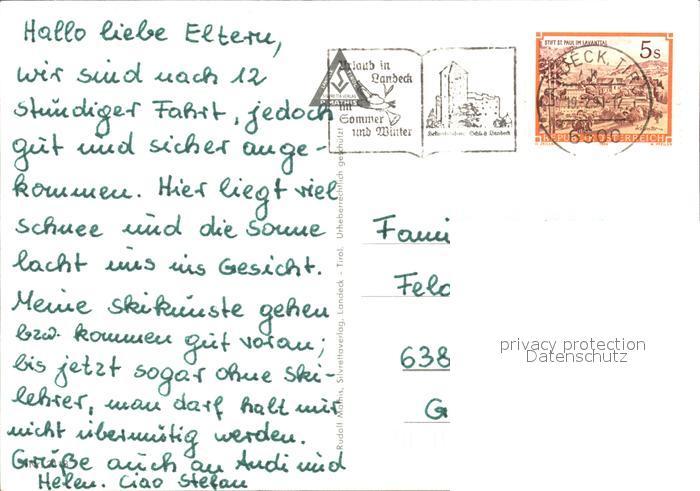 Hallo liebe Eltern,
wir sind nach 12
stündiger Fahrt, jedoch
gut und sicher ange-
kommen. Hier liegt viel
schnee und die sonne
lacht uns ins Gesicht.
Meine skikünste gehen
bzw. kommen gut voran;
bis jetzt sogar ohne ski-
lehrer, man darf halt nur
nicht übermütig werden.
Grüße auch an Andi und
Helen. Ciao Stefan
Urlaub in
Landeck
im
Sommer
und Winter
Schloß Landeck
STIFT ST. PAUL IM LAVANTTAL
5s
REPUBLIK ÖSTERREICH
6500
Rudolf Mathis, Silvrettaverlag, Landeck - Tirol. Urheberrechtlich geschützt
Fami
Feld
638
G
privacy protection
Datenschutz